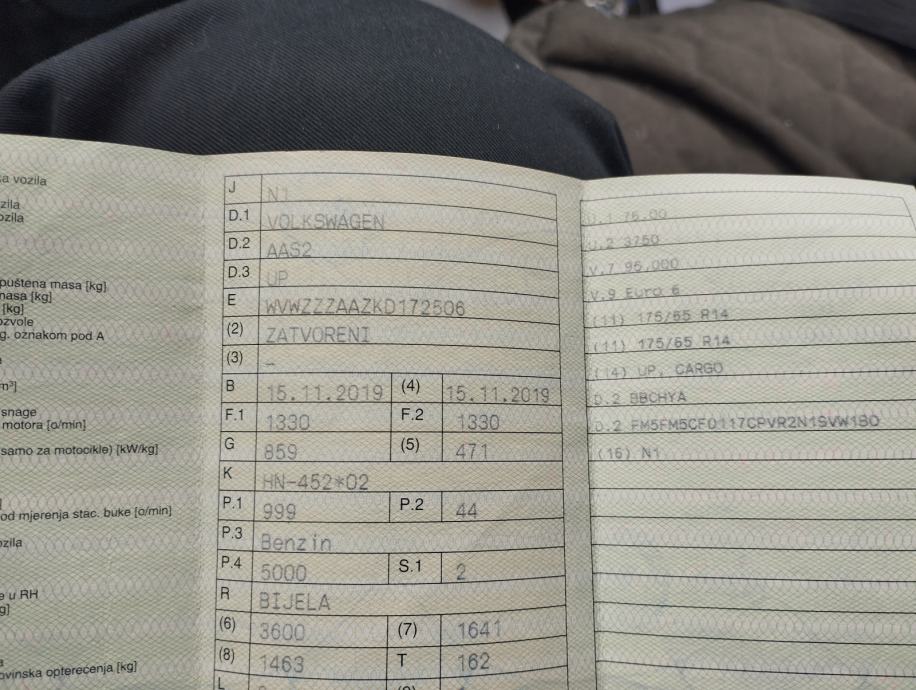 a vozila
zila
ozila
puštena masa [kg]
masa [kg]
[kg]
ozvole
g. oznakom pod A
m³]
snage
motora [o/min]
samo za motocikle) [kW/kg]
od mjerenja stac. buke [o/min]
ozila
e u RH
g]
ovinska opterećenja [kg]
J N1
D.1 VOLKSWAGEN
D.2 AAS2
D.3 UP
E WVWZZZAAZKD172506
(2) ZATVORENI
(3) –
B 15.11.2019 (4) 15.11.2019
F.1 1330 F.2 1330
G 859 (5) 471
K HN-452*02
P.1 999 P.2 44
P.3 Benzin
P.4 5000 S.1 2
R BIJELA
(6) 3600 (7) 1641
(8) 1463 T 162
L
U.1 75,00
U.2 3750
V.7 95,000
V.9 Euro 6
(11) 175/65 R14
(11) 175/65 R14
(14) UP, CARGO
D.2 BBCHYA
D.2 FM5FM5CF0117CPVR2N1SVW1BO
(16) N1